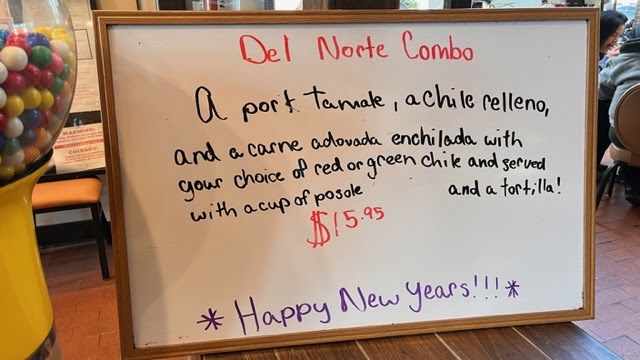 Del Norte Combo
A pork Tamale, a chile relleno,
and a carne adovada enchilada with
your choice of red or green chile and served
with a cup of posole and a tortilla!
$15.95
* Happy New Years!!! *
WARNING
CUIDADO